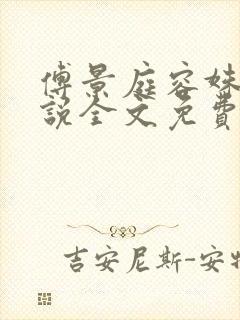 傅景庭容姝
說全文免費
吉安尼斯-安特